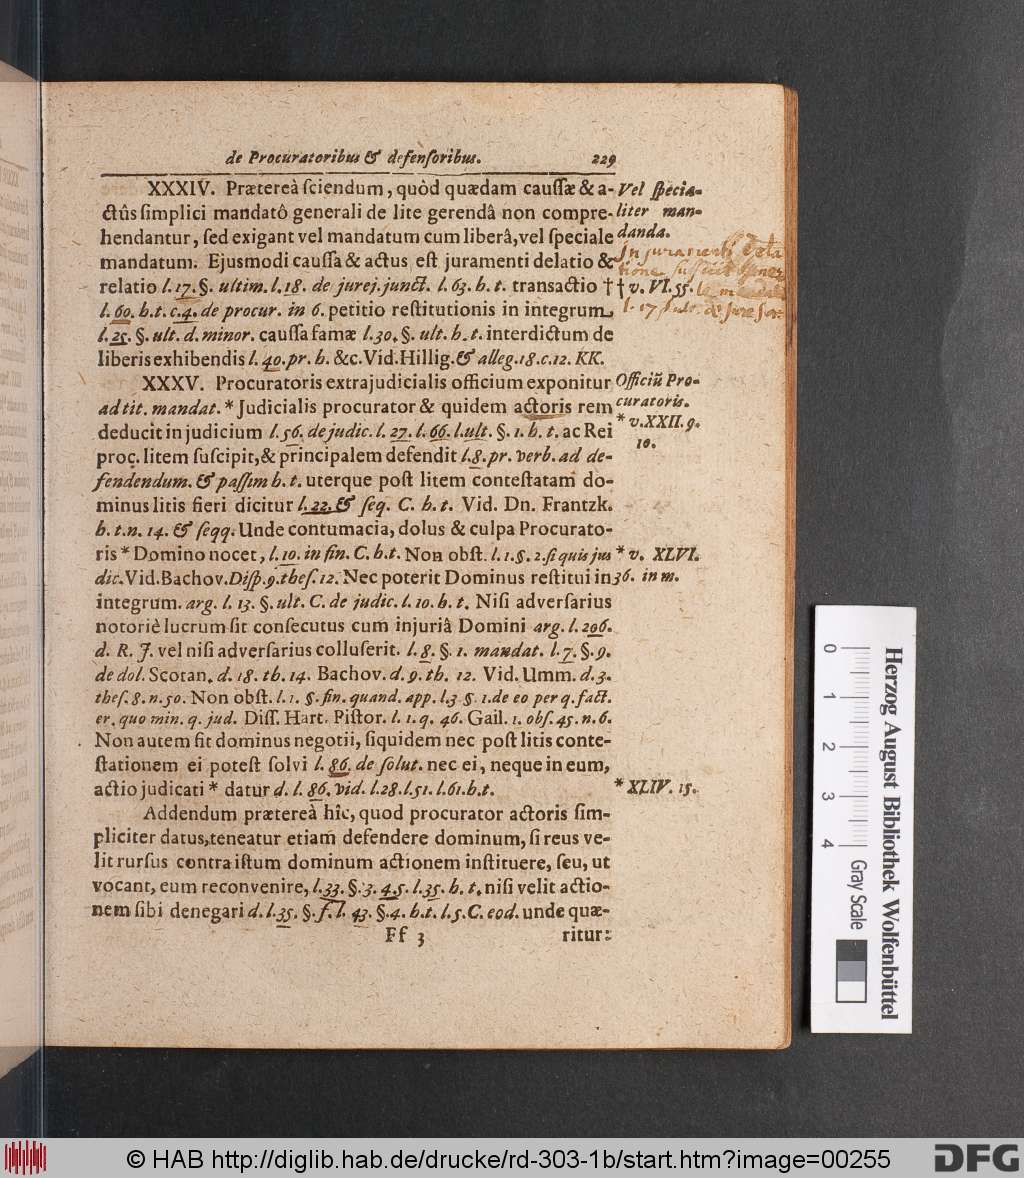 de Procuratoribus & defenſoribus. 229
XXXIV. Prætereà ſciendum, quòd quædam cauſſæ & a-
ctûs ſimplici mandatô generali de lite gerendâ non compre-
hendantur, ſed exigant vel mandatum cum liberâ, vel ſpeciale
mandatum. Ejusmodi cauſſa & actus eſt juramenti delatio &
relatio l. 17. §. ultim. l. 18. de jurej. junct. l. 63. h. t. transactio †
l. 60. h. t. c. 4. de procur. in 6. petitio reſtitutionis in integrum,
l. 25. §. ult. d. minor. cauſſa famæ l. 30, §. ult. h. t. interdictum de
liberis exhibendis l. 40. pr. h. &c. Vid. Hillig. & alleg. 18. c. 12. KK.
Vel ſpecia-
liter man-
danda.
† v. VI. 55.
XXXV. Procuratoris extrajudicialis officium exponitur
ad tit. mandat. * Judicialis procurator & quidem actoris rem
deducit in judicium l. 56. de judic. l. 27. l. 66. l. ult. §. 1. h. t. ac Rei
proc. litem ſuſcipit, & principalem defendit l. 8. pr. verb. ad de-
fendendum. & paſſim h. t. uterque poſt litem conteſtatam do-
minus litis fieri dicitur l. 22. & ſeq. C. h. t. Vid. Dn. Frantzk.
h. t. n. 14. & ſeqq. Unde contumacia, dolus & culpa Procurato-
ris * Domino nocet, l. 10. in fin. C. h. t. Non obſt. l. 1. §. 2. ſi quis jus
dic. Vid. Bachov. Diſp. 9. theſ. 12. Nec poterit Dominus reſtitui in
integrum. arg. l. 13. §. ult. C. de judic. l. 10. h. t. Niſi adverſarius
notoriè lucrum ſit conſecutus cum injuriâ Domini arg. l. 206.
d. R. J. vel niſi adverſarius colluſerit. l. 8. §. 1. mandat. l. 7. §. 9.
de dol. Scotan. d. 18. th. 14. Bachov. d. 9. th. 12. Vid. Umm. d. 3.
theſ. 8. n. 50. Non obſt. l. 1. §. fin. quand. app. l. 3 §. 1. de eo per q. fact.
er. quo min. q. jud. Diſſ. Hart. Piſtor. l. 1. q. 46. Gail. 1. obſ. 45. n. 6.
Non autem fit dominus negotii, ſiquidem nec poſt litis conte-
ſtationem ei poteſt ſolvi l. 86. de ſolut. nec ei, neque in eum,
actio judicati * datur d. l. 86. vid. l. 28. l. 51. l. 61. h. t.
Officiũ Pro-
curatoris.
* v. XXII. 9.
10.
* v. XLVI.
36. in m.
* XLIV. 15.
Addendum prætereà hîc, quod procurator actoris ſim-
pliciter datus, teneatur etiam defendere dominum, ſi reus ve-
lit rurſus contra iſtum dominum actionem inſtituere, ſeu, ut
vocant, eum reconvenire, l. 33. §. 3. 4. 5. l. 35. h. t. niſi velit actio-
nem ſibi denegari d. l. 35. §. f. l. 43. §. 4. h. t. l. 5. C. eod. unde quæ-
Ff 3 ritur:
Herzog August Bibliothek Wolfenbüttel
0 1 2 3 4
Gray Scale
© HAB http://diglib.hab.de/drucke/rd-303-1b/start.htm?image=00255
DFG